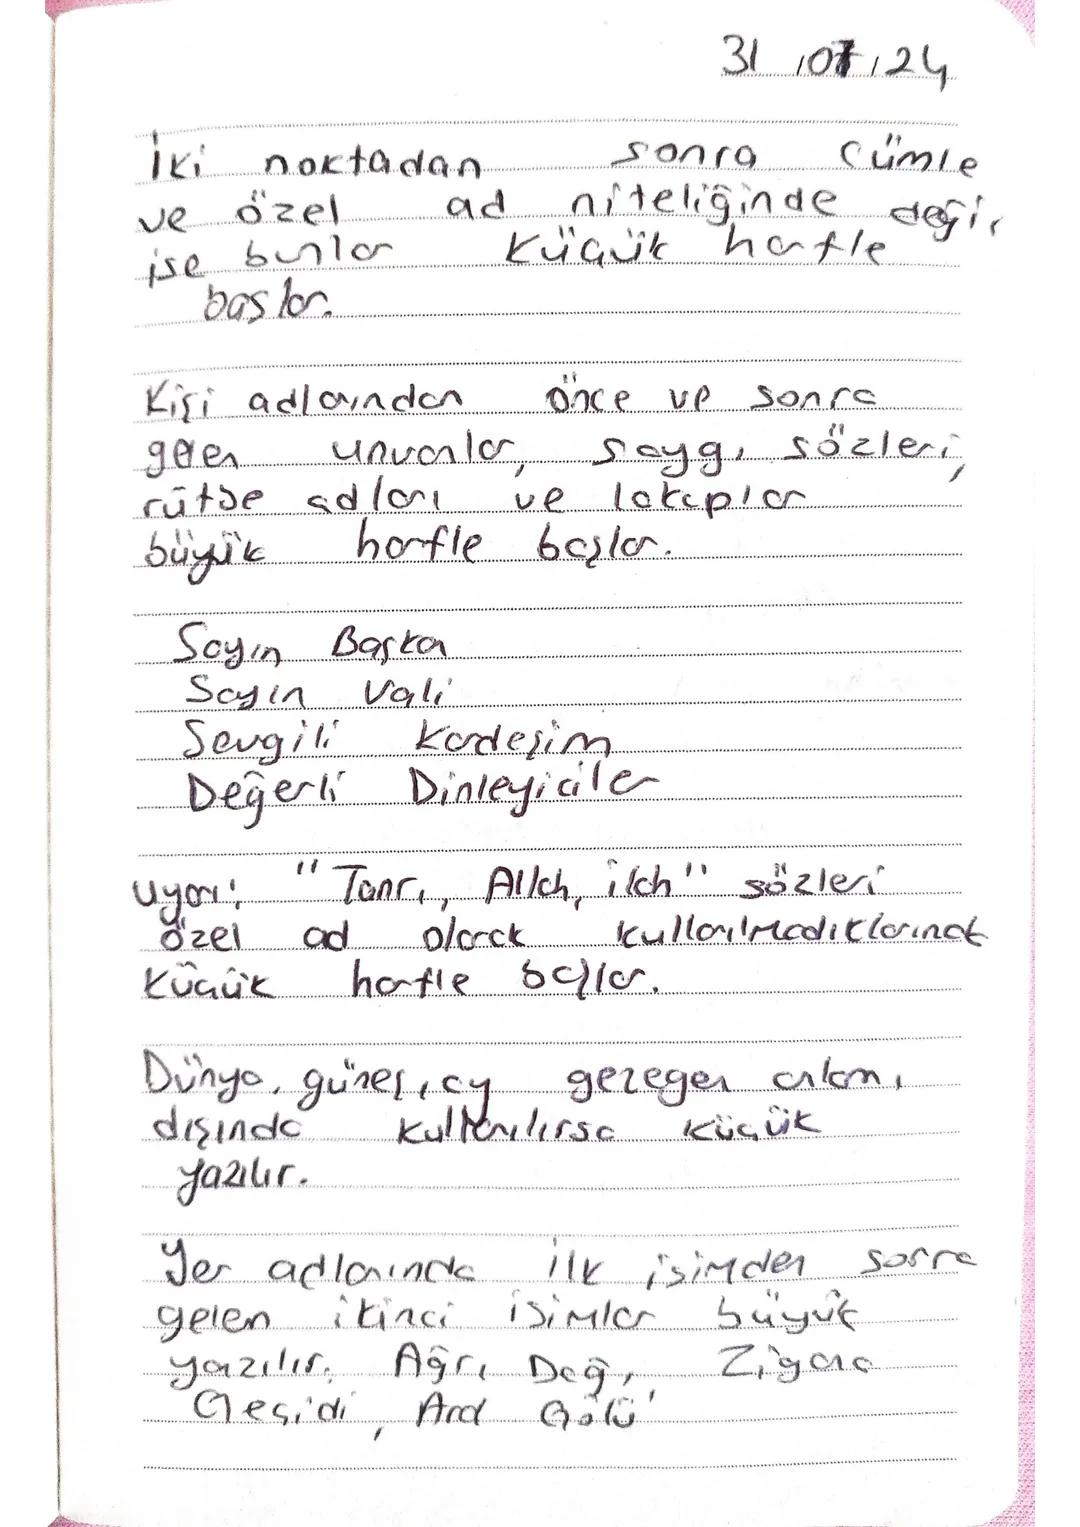 31.07.24
İki noktadan sonra cümle
ve özel ad niteliğinde değil
ise bunlar küçük harfle
başlar.
Kişi adlarından önce ve sonra
gelen unvanlar, saygı sözleri,
rütbe adları ve lakaplar
büyük harfle başlar.
Sayın Başkan
Sayın Vali
Sevgili Kardeşim
Değerli Dinleyiciler
Uyarı: "Tanrı, Allah, ilah" sözleri
özel ad olarak kullanılmadıklarında
küçük harfle başlar.
Dünya, güneş, ay gezegen anlamı
dışında kullanılırsa küçük
yazılır.
Yer adlarında ilk isimden sonra
gelen ikinci isimler büyük
yazılır. Ağrı Dağı, Zigana
Geçidi, Aral Gölü